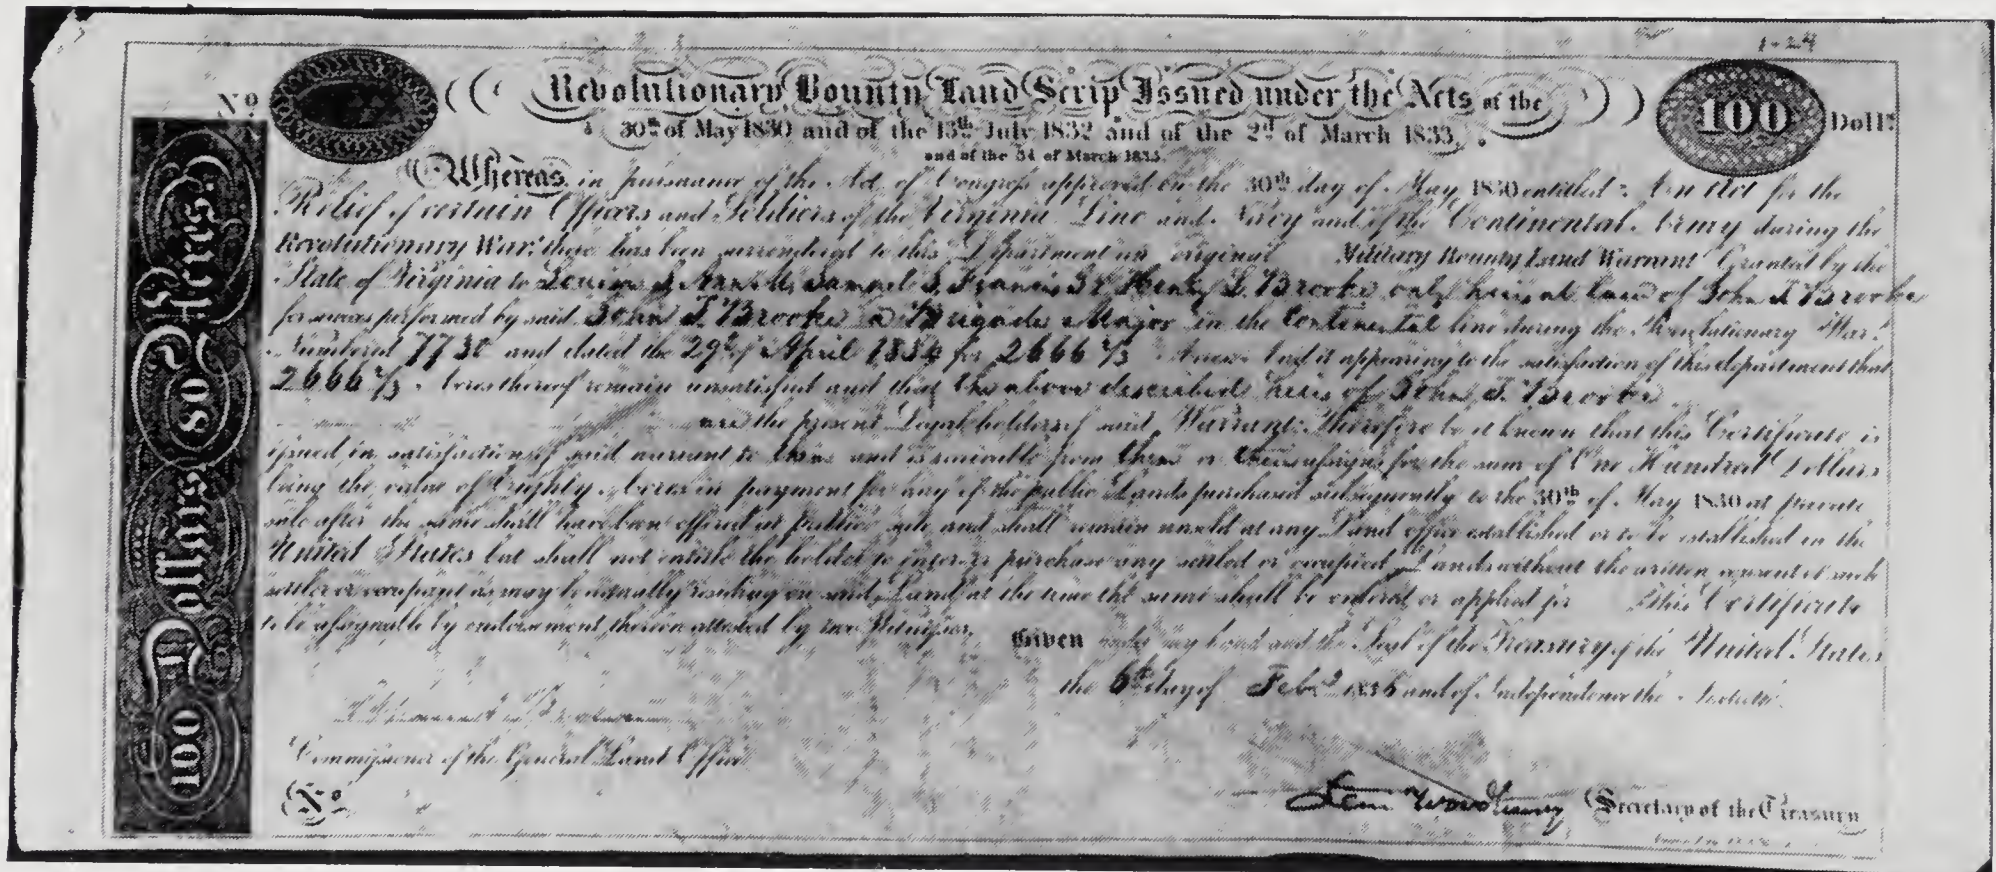 1-24
No.
Revolutionary Bounty Land Scrip Issued under the Acts of the
100 Doll.s
30th of May 1830 and of the 13th July 1832 and of the 2d of March 1833.
and of the 3d of March 1835.
100 Dollars 80 Acres.
Whereas, in pursuance of the Act of Congress approved on the 30th day of May 1830 entitled "An Act for the
Relief of certain Officers and Soldiers of the Virginia Line and Navy and of the Continental Army during the
Revolutionary War." there has been surrendered to this Department an original Military Bounty Land Warrant Granted by the
State of Virginia to Louisa S, Ann M, Samuel S, Francis & Henry L Brooke only heirs at law of John T Brooke
for services performed by said John T. Brooke a Brigade Major in the Continental line during the Revolutionary War.
Numbered 7730 and dated the 29th of April 1834 for 2666 2/3 Acres And it appearing to the satisfaction of this department that
2666 2/3 Acres thereof remain unsatisfied and that the above described heirs of John T. Brooke
are the present Legal holders of said Warrant: Therefore be it known that this Certificate is
issued in satisfaction of said warrant to them and is receivable from them or their assigns for the sum of One Hundred Dollars
being the value of Eighty Acres in payment for any of the public Lands purchased subsequently to the 30th of May 1830 at private
sale after the same shall have been offered at public sale and shall remain unsold at any Land office established or to be established in the
United States but shall not entitle the holder to enter or purchase any settled or occupied Lands without the written consent of such
settler or occupant as may be actually residing on said Land at the time the same shall be entered or applied for This Certificate
to be assignable by endorsement thereon attested by two Witnesses.
Given under my hand and the Seal of the Treasury of the United States
the 6th day of Feby. 1836 and of Independence the Sixtieth.
Commissioner of the General Land Office
No.
Levi Woodbury Secretary of the Treasury